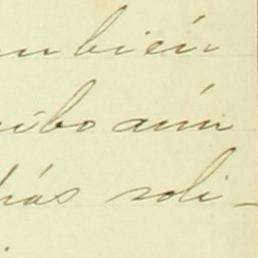 mbién
cibo aún
más soli-